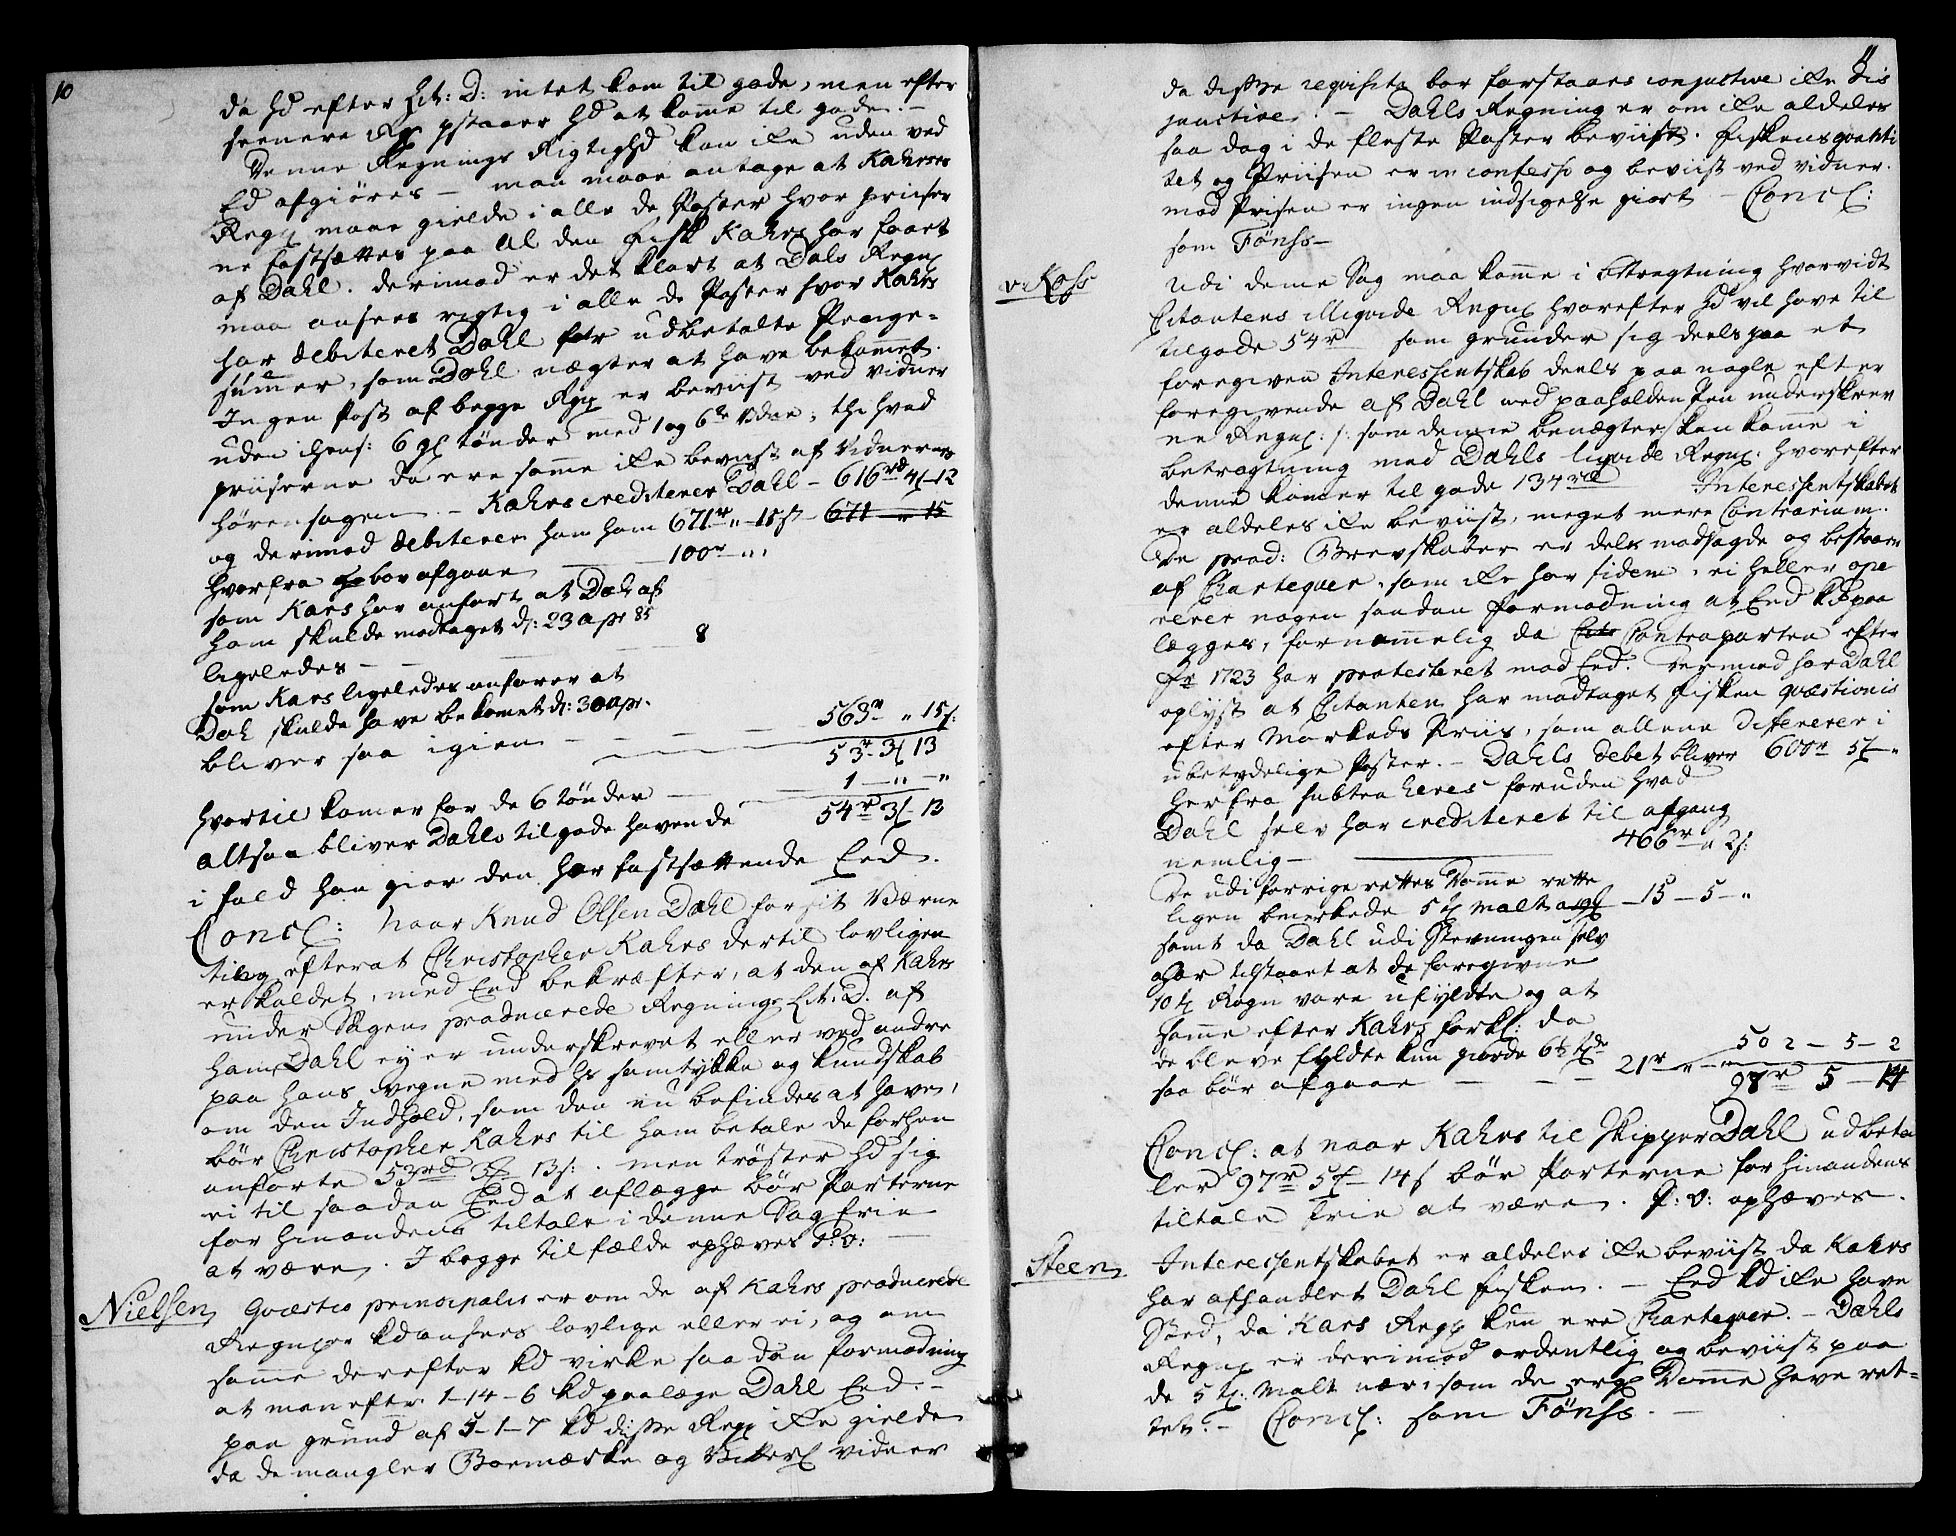 10
da hd efter Lit: D: intet kom til gode, men efter
seenere Rg. pstaaer hd at komme til gode. –
Denne Regnings Rigtighd kan ike uden ved
Ed afgiöres – man maae antage at Kahrses
Regn maae gielde i alle de Poster hvor priiser
ne fastsættes paa al den fisk Kahrs har faaet
af Dahl. derimod er det klart at Dals Regn
maa ansees rigtig i alle de Poster hvor Kahrs
har debiteret Dahl for udbetalte Penge-
summer, som Dahl nægter at have bekommet.
Ingen Post af begge Rgr er beviist ved vidner
uden 6 tönder med 1 og 6te vidne; thi hvad
priiserne da ere samme ike beviist af Vidnernes
hörensagen. – Kahrs crediterer Dahl – 616rd 4 – 12
og derimod debiterer ham 671r „ – 15s – 671 „ 15
hvorfra bör afgaae – 100r „ „
som Kars har anfört at Dahl af
ham skulde modtaget d: 23 apr 85
ligeledes – – 8
som Kars ligeledes anförer at
Dahl skulde have bekomet d: 30 apr.
563r „ 15s:
bliver saa igien – – – 53r 3 13
hvortil komer for de 6 tönder – 1 – „ – „
altsaa bliver Dahls tilgode havende 54r 3 – 13
i fald han giör den her fastsættende Eed.
Concl: Naar Knud Olsen Dahl for sit Værne
ting efterat Christopher Kahrs dertil lovligen
er kaldet, med Eed bekræfter, at den af Kahrs
under Sagen producerede Regning Lit. D. af
ham Dahl ey er underskrevet eller ved andre
paa hans vegne med hs samtykke og kundskab
om den Indhold, som den nu befindes at have,
bör Christopher Kahrs til ham betale de forhen
anförte 53rd 3 13s: men tröster hd sig
ei til saadan Eed at aflægge bör Parterne
for hinandens tiltale i denne Sag frie
at være. I begge tilfælde ophæves P: O: –
Nielsen
Qvæstio principalis er om de af Kahrs producerede
Regnr kd ansees lovlige eller ei, og om
samme derefter kd virke saadan formodning
at man efter 1–14–6 kd paalæge Dahl Eed. –
paa grund af 5–1–7 kd disse Regr ike gielde
da de mangler Boemærke og vidner
11
da disse reqvisita bör forstaaes conjuctive ike dis
junctive. – Dahls Regning er om ike aldeles
saa dog i de fleste Poster beviist. fiskens qvanti
tet og Priisen er in confesso og beviist ved vidner.
mod Prisen er ingen indsigelse giort – Concl:
som Fönss –
v. Koss
Udi denne Sag maa komme i betragtning hvorvidt
Citantens illiqvide Regn hvorefter hd vil have til
tilgode 54r som grunder sig deels paa et
foregiven Interessentskab deels paa nogle efter
foregivende af Dahl med paaholden Pen underskrev
ne Regnr: /: som denne benægter: kan komme i
betragtning mod Dahls liqvide Regnr. hvorefter
denne komer til gode 134rd Interessentskabet
er aldeles ike beviist, meget mere Contrarium.
De prod: Brevskaber er dels modsagde og bestaaer
af Chartequer, som ike har fidem, ei heller ope
rerer nogen saadan formodning at Eed kd paa
lægges, fornemmelig da Contraparten efter
Fr 1723 har protesteret mod Eed. Derimod har Dahl
oplyst at Citanten har modtaget fisken qvæstionis
efter Markeds Priis, som allene differerer i
ubetydelige Poster. – Dahls debet bliver 600r 5 – „
herfra subtraheres foruden hvad
Dahl selv har crediteret til afgang
nemlig – 466r „ 2s:
De udi forrige rettes Domme rette
ligen bemerkede 5 t Malt – 15 – 5 – „
samt da Dahl udi Stevningen selv
har tilstaaet at de foregivne
10 t Rogn vare ufyldte og at
samme efter Kahrs forkl: da
de bleve fyldte kun giorde 6½ t
saa bör afgaae – – – 21r „ – „ 502 – 5 – 2
97r 5 – 14
Concl: at naar Kahrs til Skipper Dahl udbeta
ler 97r 5 14s bör Parterne for hinandens
tiltale frie at være. P: O: ophæves.
Steen
Interessentskabet er aldeles ike beviist da Kahrs
har afhandlet Dahl fisken. – Eed kd ike have
Sted, da Kars Regr kun ere Chartequer. – Dahls
Regnr er derimod ordentlig og beviist paa
de 5 t. Malt nær, som de Domme have ret-
tet. – Concl: som Fönss. –